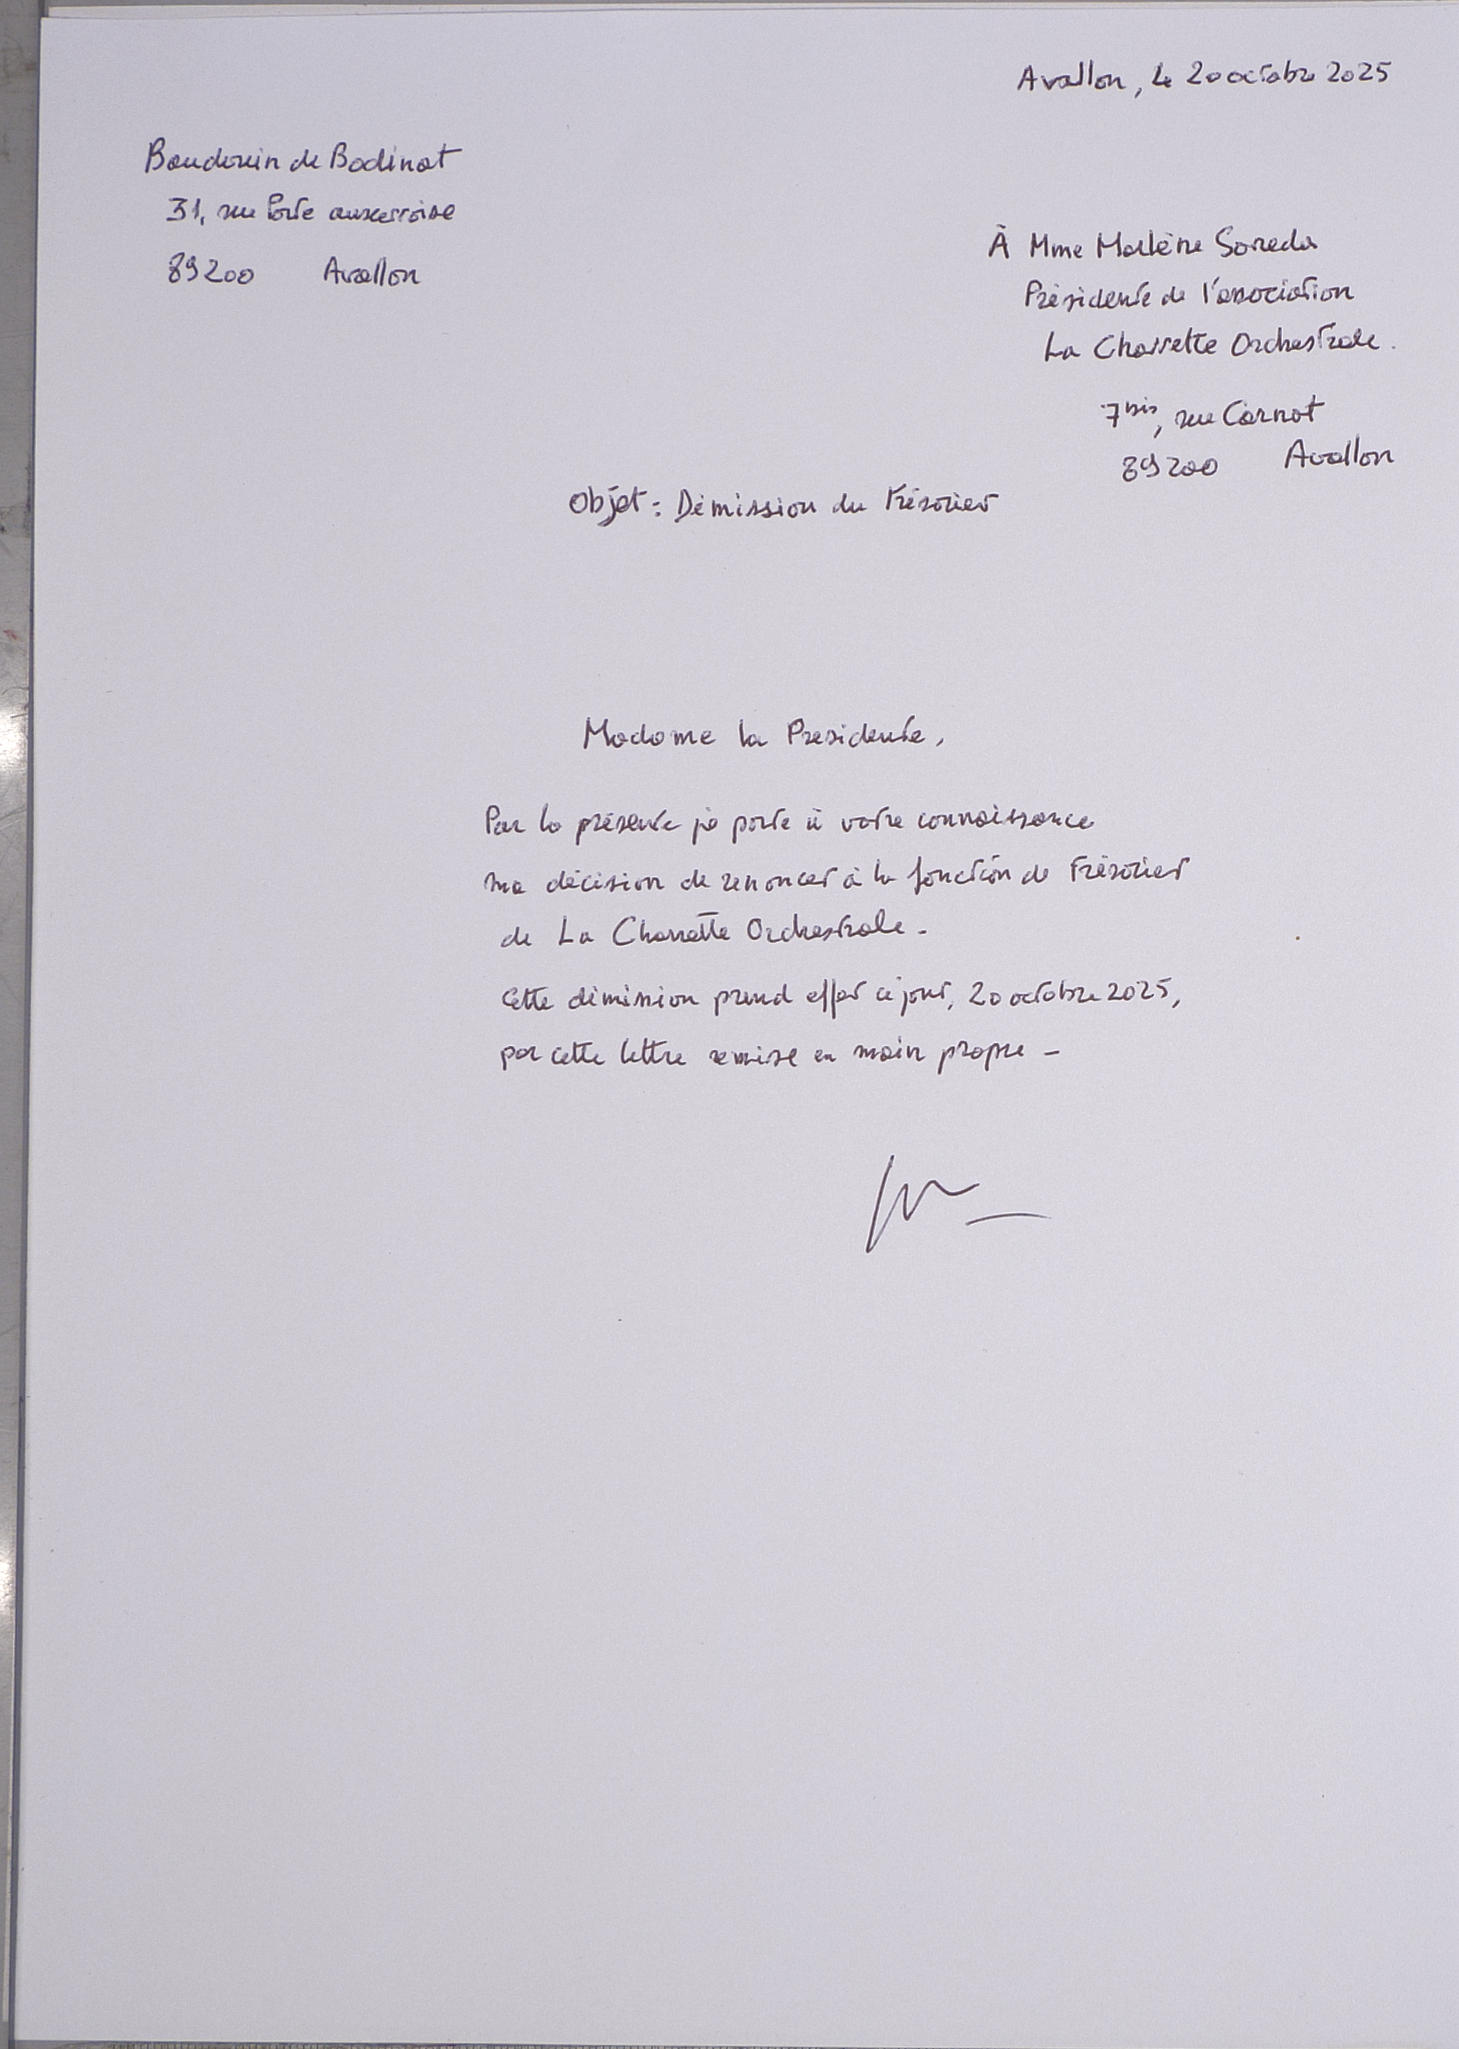 Avallon, le 20 octobre 2025
Baudouin de Bodinat
31, rue Porte auxerroise
89200 Avallon
À Mme Marlène Soreda
Présidente de l'association
La Charrette Orchestrale.
7 bis, rue Carnot
89200 Avallon
Objet : Démission du trésorier
Madame la Présidente,
Par la présente je porte à votre connaissance
ma décision de renoncer à la fonction de trésorier
de La Charrette Orchestrale.
Cette démission prend effet ce jour, 20 octobre 2025,
par cette lettre remise en main propre -